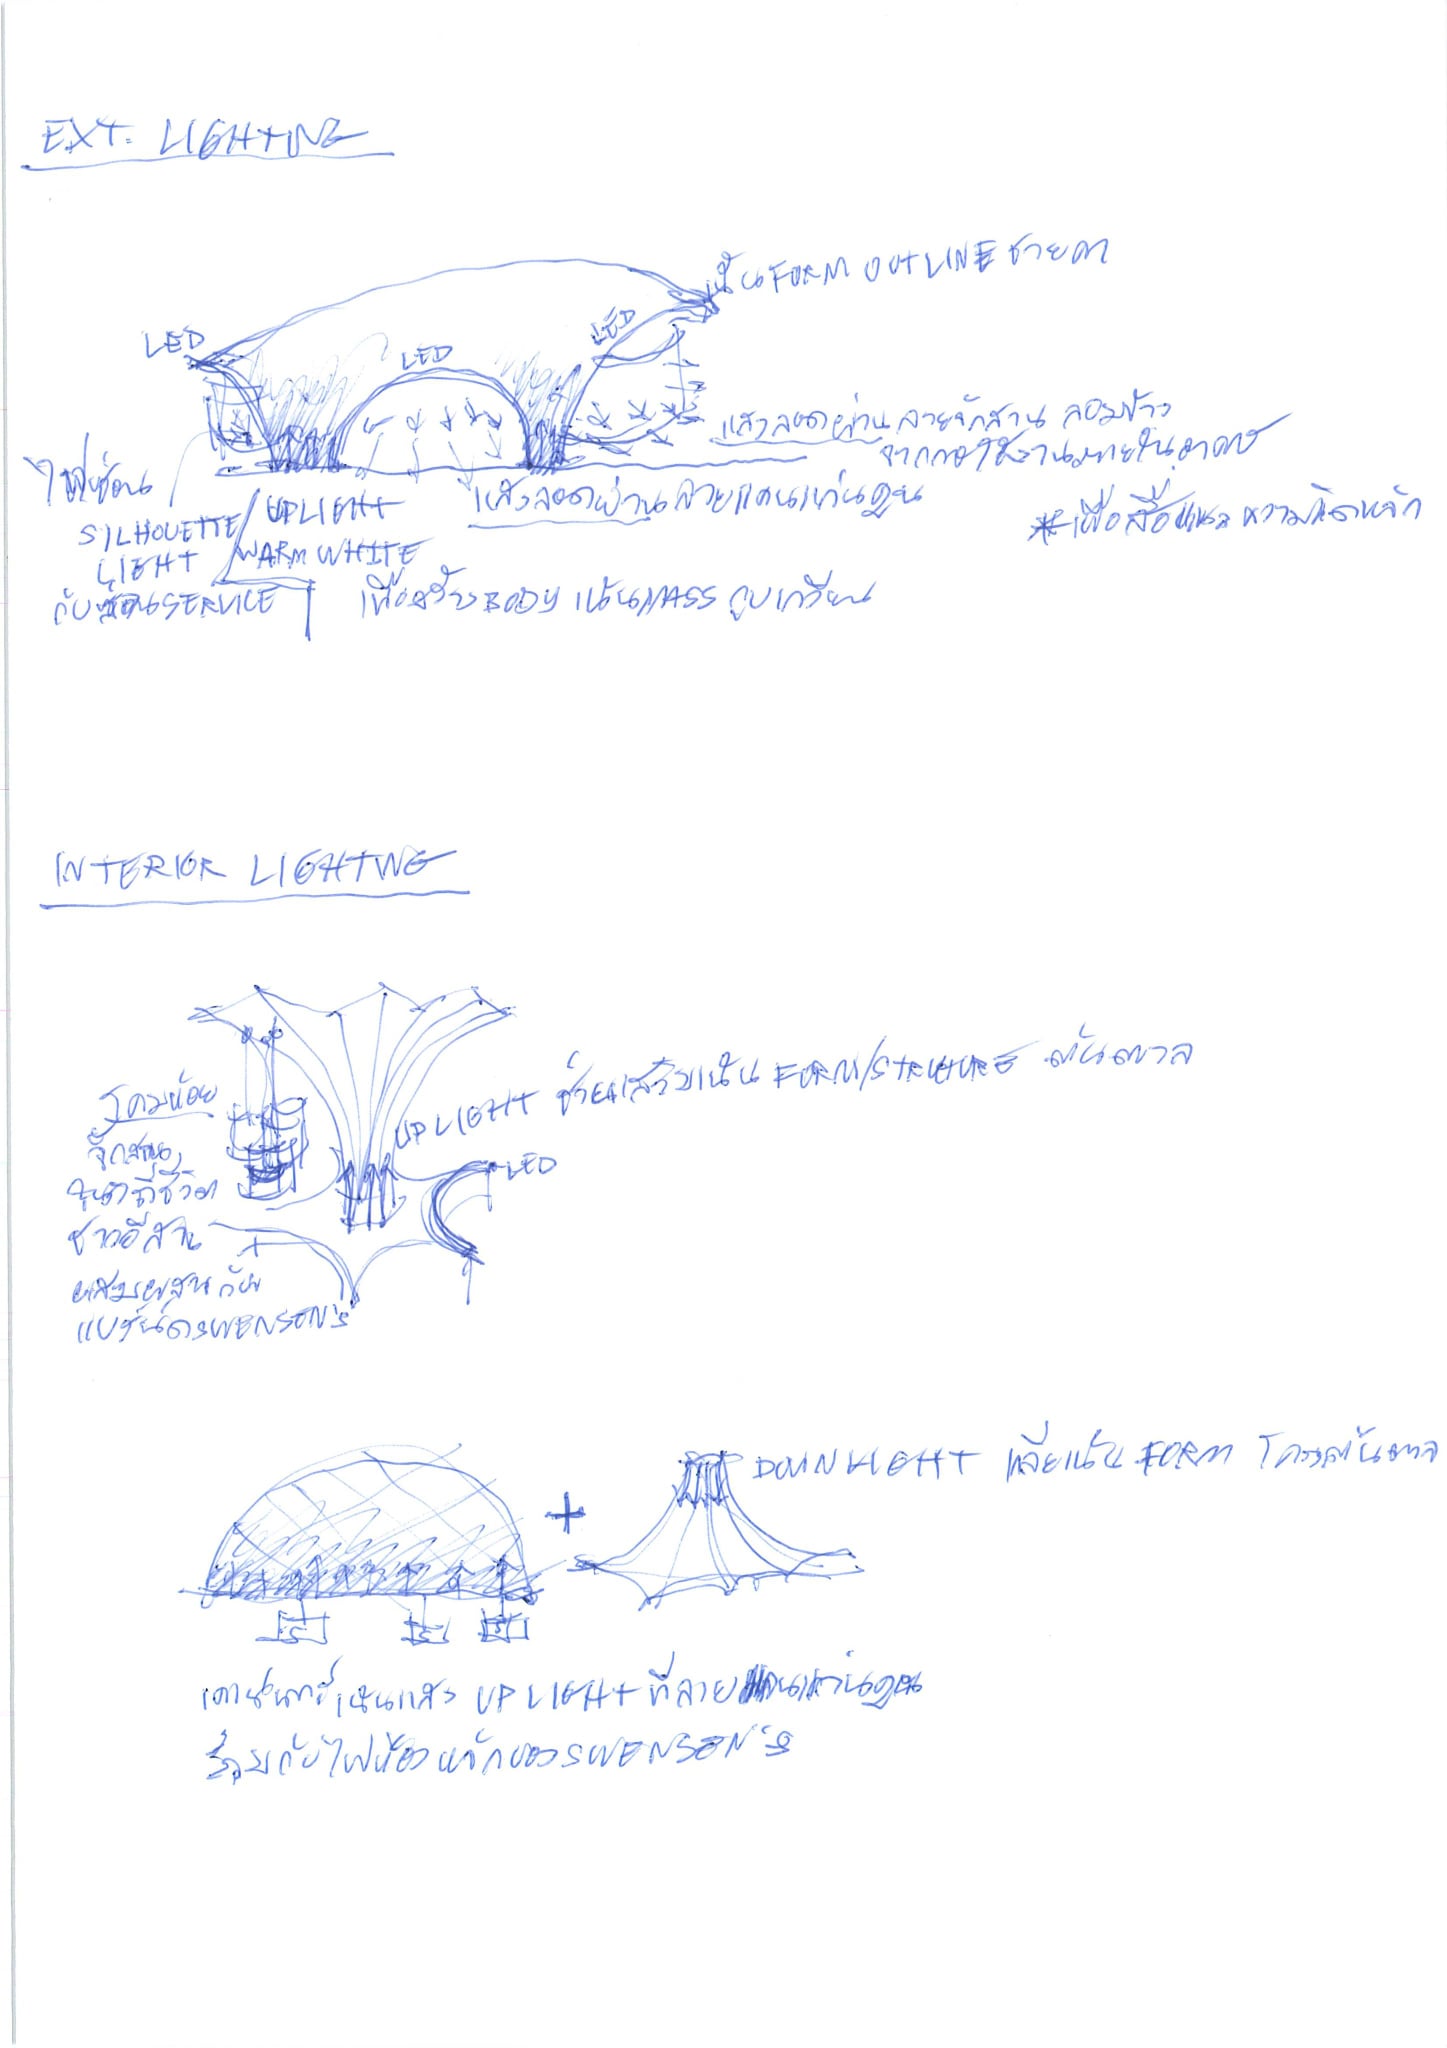 EXT. LIGHTING
เน้น FORM OUTLINE ชายคา
LED
LED
LED
แสงลอดผ่าน ลายจักสาน ลอมข้าว
จากการใช้งานภายในอาคาร
ไฟซ่อน
SILHOUETTE
LIGHT
กับส่วน SERVICE
UPLIGHT
WARM WHITE
แสงลอดผ่าน ลายแคนแก่นคูน
*เพื่อสื่อ ความคิดหลัก
เพื่อสร้าง BODY เน้น MASS กูบเกวียน
INTERIOR LIGHTING
UPLIGHT ช่วยเสริมเน้น FORM/STRUTURE ต้นตาล
LED
โคมห้อย
จักสาน
วิถีชีวิต
ชาวอีสาน
ผสมผสานกับ
แบรนด์ SWENSEN'S
DOWNLIGHT เน้น FORM โครงต้นตาล
+
เคาน์เตอร์เน้นแสง UPLIGHT ที่ลายแคนแก่นคูน
ร่วมกับไฟห้อยหลักของ SWENSEN'S